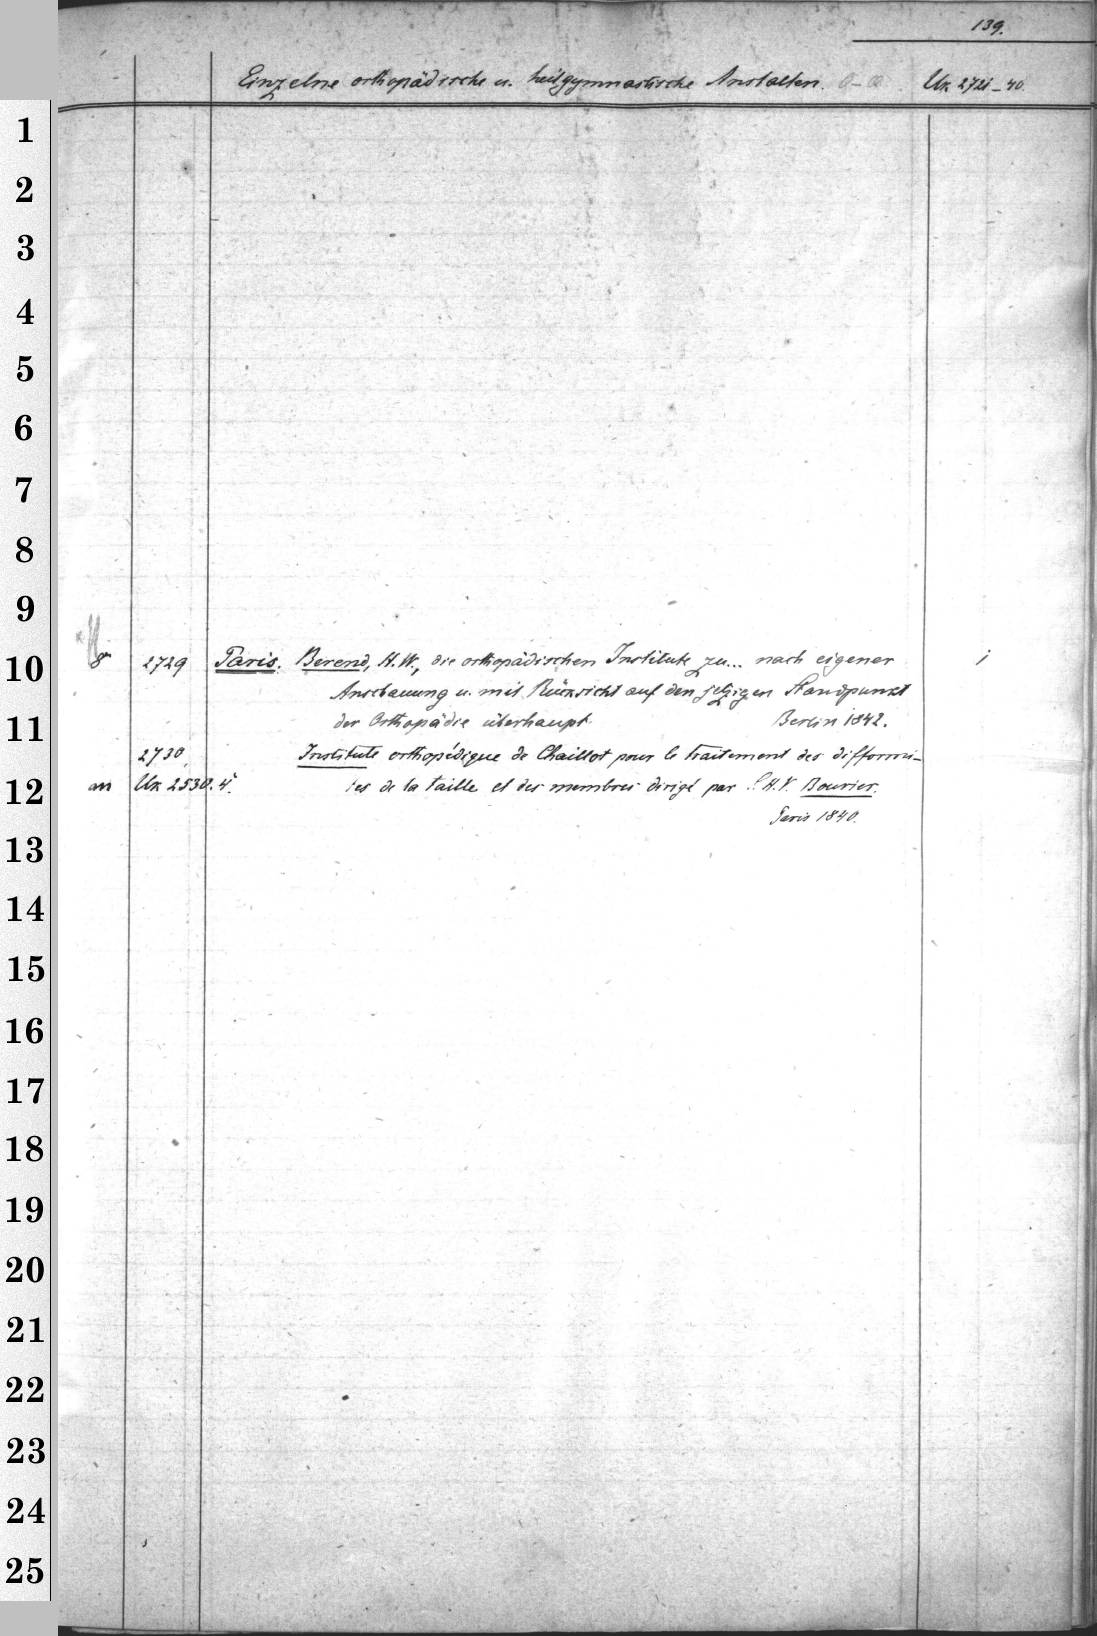 139.
Einzelne orthopädische u. heilgymnastische Anstalten. O-Q Uk 2721-40.
1
2
3
4
5
6
7
8
9
10 8° 2729 Paris. Berend, H. W., die orthopädischen Institute zu... nach eigener 1
Anschauung u. mit Rücksicht auf den jetzigen Standpunkt
11 der Orthopädie überhaupt. Berlin 1842.
2730, Institute orthopédique de Chaillot pour le traitement des difformi-
12 an Uk 2530. 4° tes de la taille et des membres dirigé par H. V. Bouvier.
Paris 1840.
13
14
15
16
17
18
19
20
21
22
23
24
25